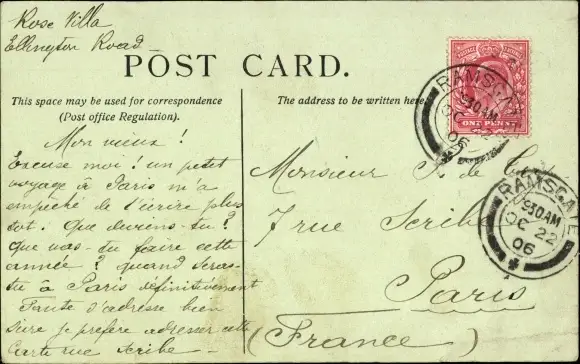 Rose Villa
Ellington Road
POST CARD.
This space may be used for correspondence
(Post office Regulation).
The address to be written here
Mon vieux !
Excuse moi ! un petit
voyage à Paris m'a
empêché de t'écrire plus
tôt. Que deviens-tu ?
Que vas-tu faire cette
année ? quand seras-
tu à Paris définitivement
Faute d'adresse bien
sûre je préfère adresser cette
Carte rue Scribe -
Monsieur de
7 rue Scribe
Paris
(France)
ONE PENNY
RAMSGATE
930AM
OC 22
06
RAMSGATE
930AM
OC 22
06